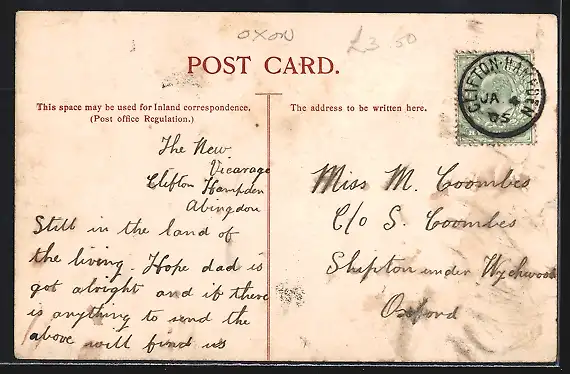 OXON
£3.50
POST CARD.
This space may be used for Inland correspondence.
(Post office Regulation.)
The address to be written here.
CLIFTON·HAMPDEN
JA 4
05
The New
Vicarage
Clifton Hampden
Abingdon
Still in the land of
the living. Hope dad is
got alright and if there
is anything to send the
above will find us
Miss M. Coombes
C/o S. Coombes
Shipton under Wychwood
Oxford